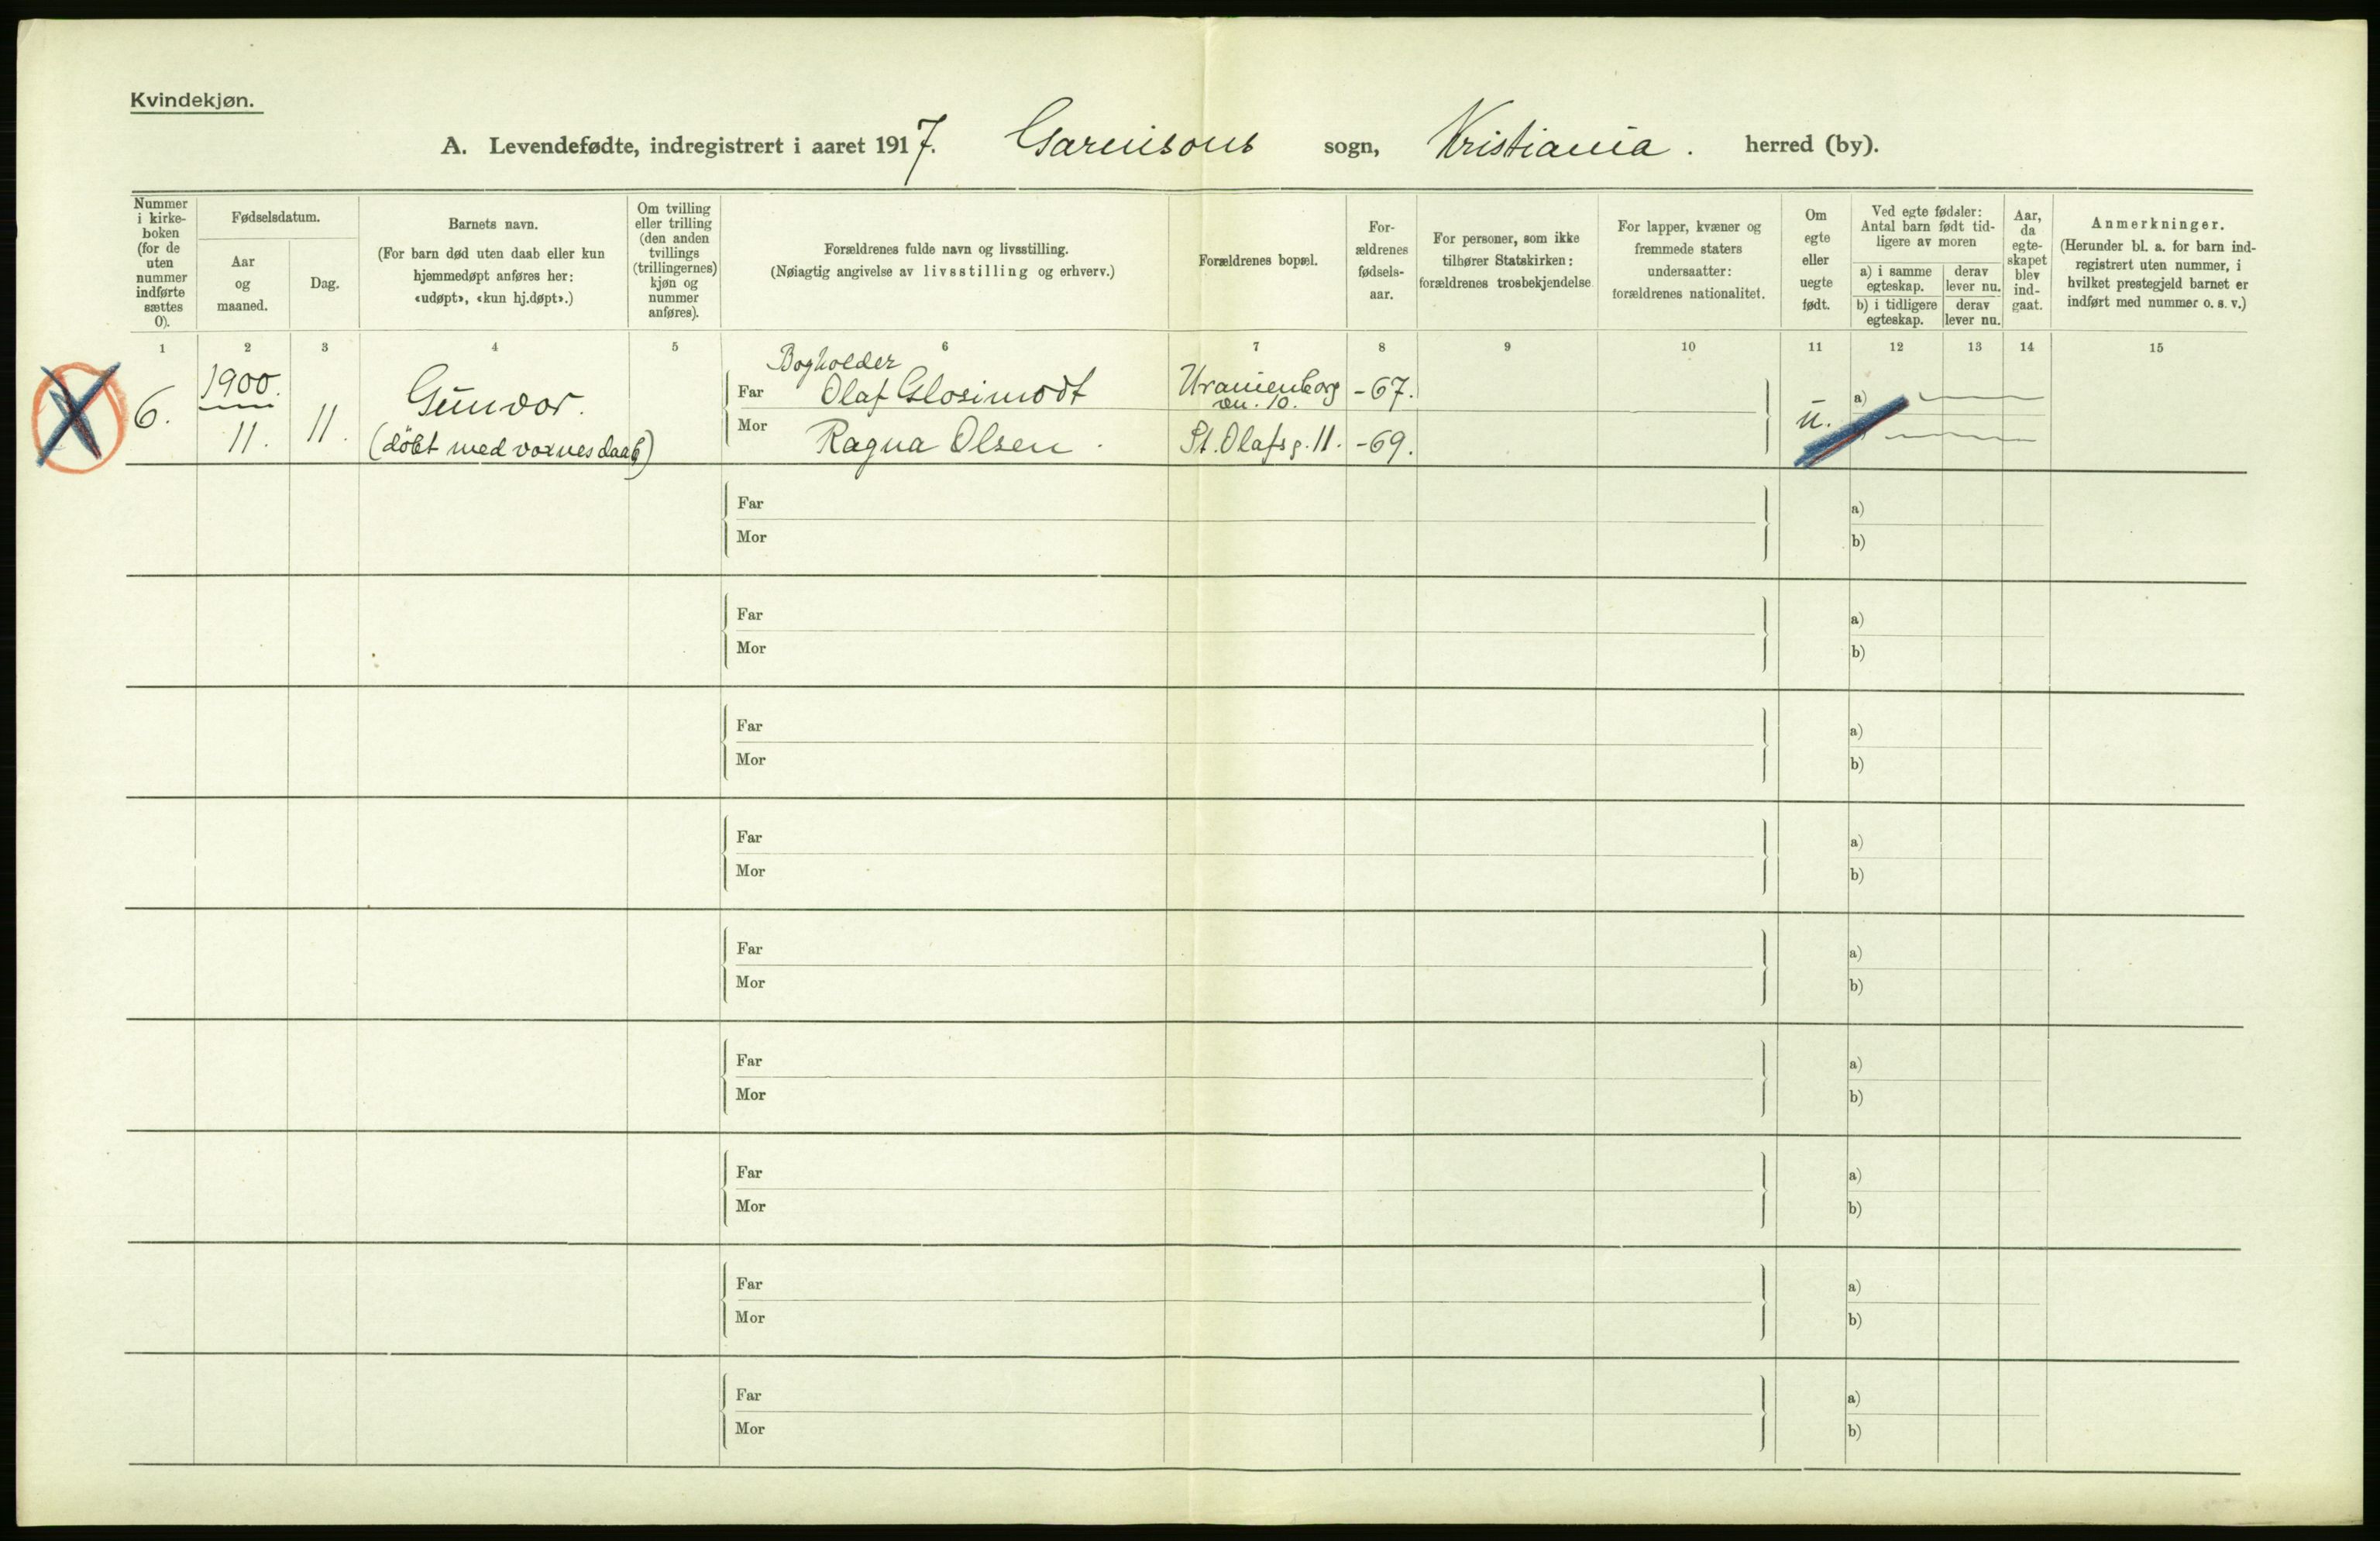 Kvindekjøn.
A. Levendefødte, indregistrert i aaret 1917. Garnisons sogn, Kristiania. herred (by).
Nummer
i kirke-
boken
(for de
uten
nummer
indførte
sættes
0).
Fødselsdatum.
Aar
og
maaned.
Dag.
Barnets navn.
(For barn død uten daab eller kun
hjemmedøpt anføres her:
«udøpt», «kun hj.døpt».)
Om tvilling
eller trilling
(den anden
tvillings
(trillingernes)
kjøn og
nummer
anføres).
Forældrenes fulde navn og livsstilling.
(Nøiagtig angivelse av livsstilling og erhverv.)
Forældrenes bopæl.
For-
ældrenes
fødsels-
aar.
For personer, som ikke
tilhører Statskirken:
forældrenes trosbekjendelse.
For lapper, kvæner og
fremmede staters
undersaatter:
forældrenes nationalitet.
Om
egte
eller
uegte
født.
Ved egte fødsler:
Antal barn født tid-
ligere av moren
a) i samme
egteskap.
derav
lever nu.
b) i tidligere
egteskap.
derav
lever nu.
Aar,
da
egte-
skapet
blev
ind-
gaat.
Anmerkninger.
(Herunder bl. a. for barn ind-
registrert uten nummer, i
hvilket prestegjeld barnet er
indført med nummer o. s. v.)
1 2 3 4 5 6 7 8 9 10 11 12 13 14 15
6.
1900.
11.
11.
Gunvor.
(döbt med voxnes daab)
Bogholder
Far Olaf Glosimodt
Uranienborg
vn. 10.
-67.
Mor Ragna Olsen.
St. Olafs g. 11.
-69.
u.
a)
Far
Mor
a)
b)
Far
Mor
a)
b)
Far
Mor
a)
b)
Far
Mor
a)
b)
Far
Mor
a)
b)
Far
Mor
a)
b)
Far
Mor
a)
b)
Far
Mor
a)
b)
Far
Mor
a)
b)